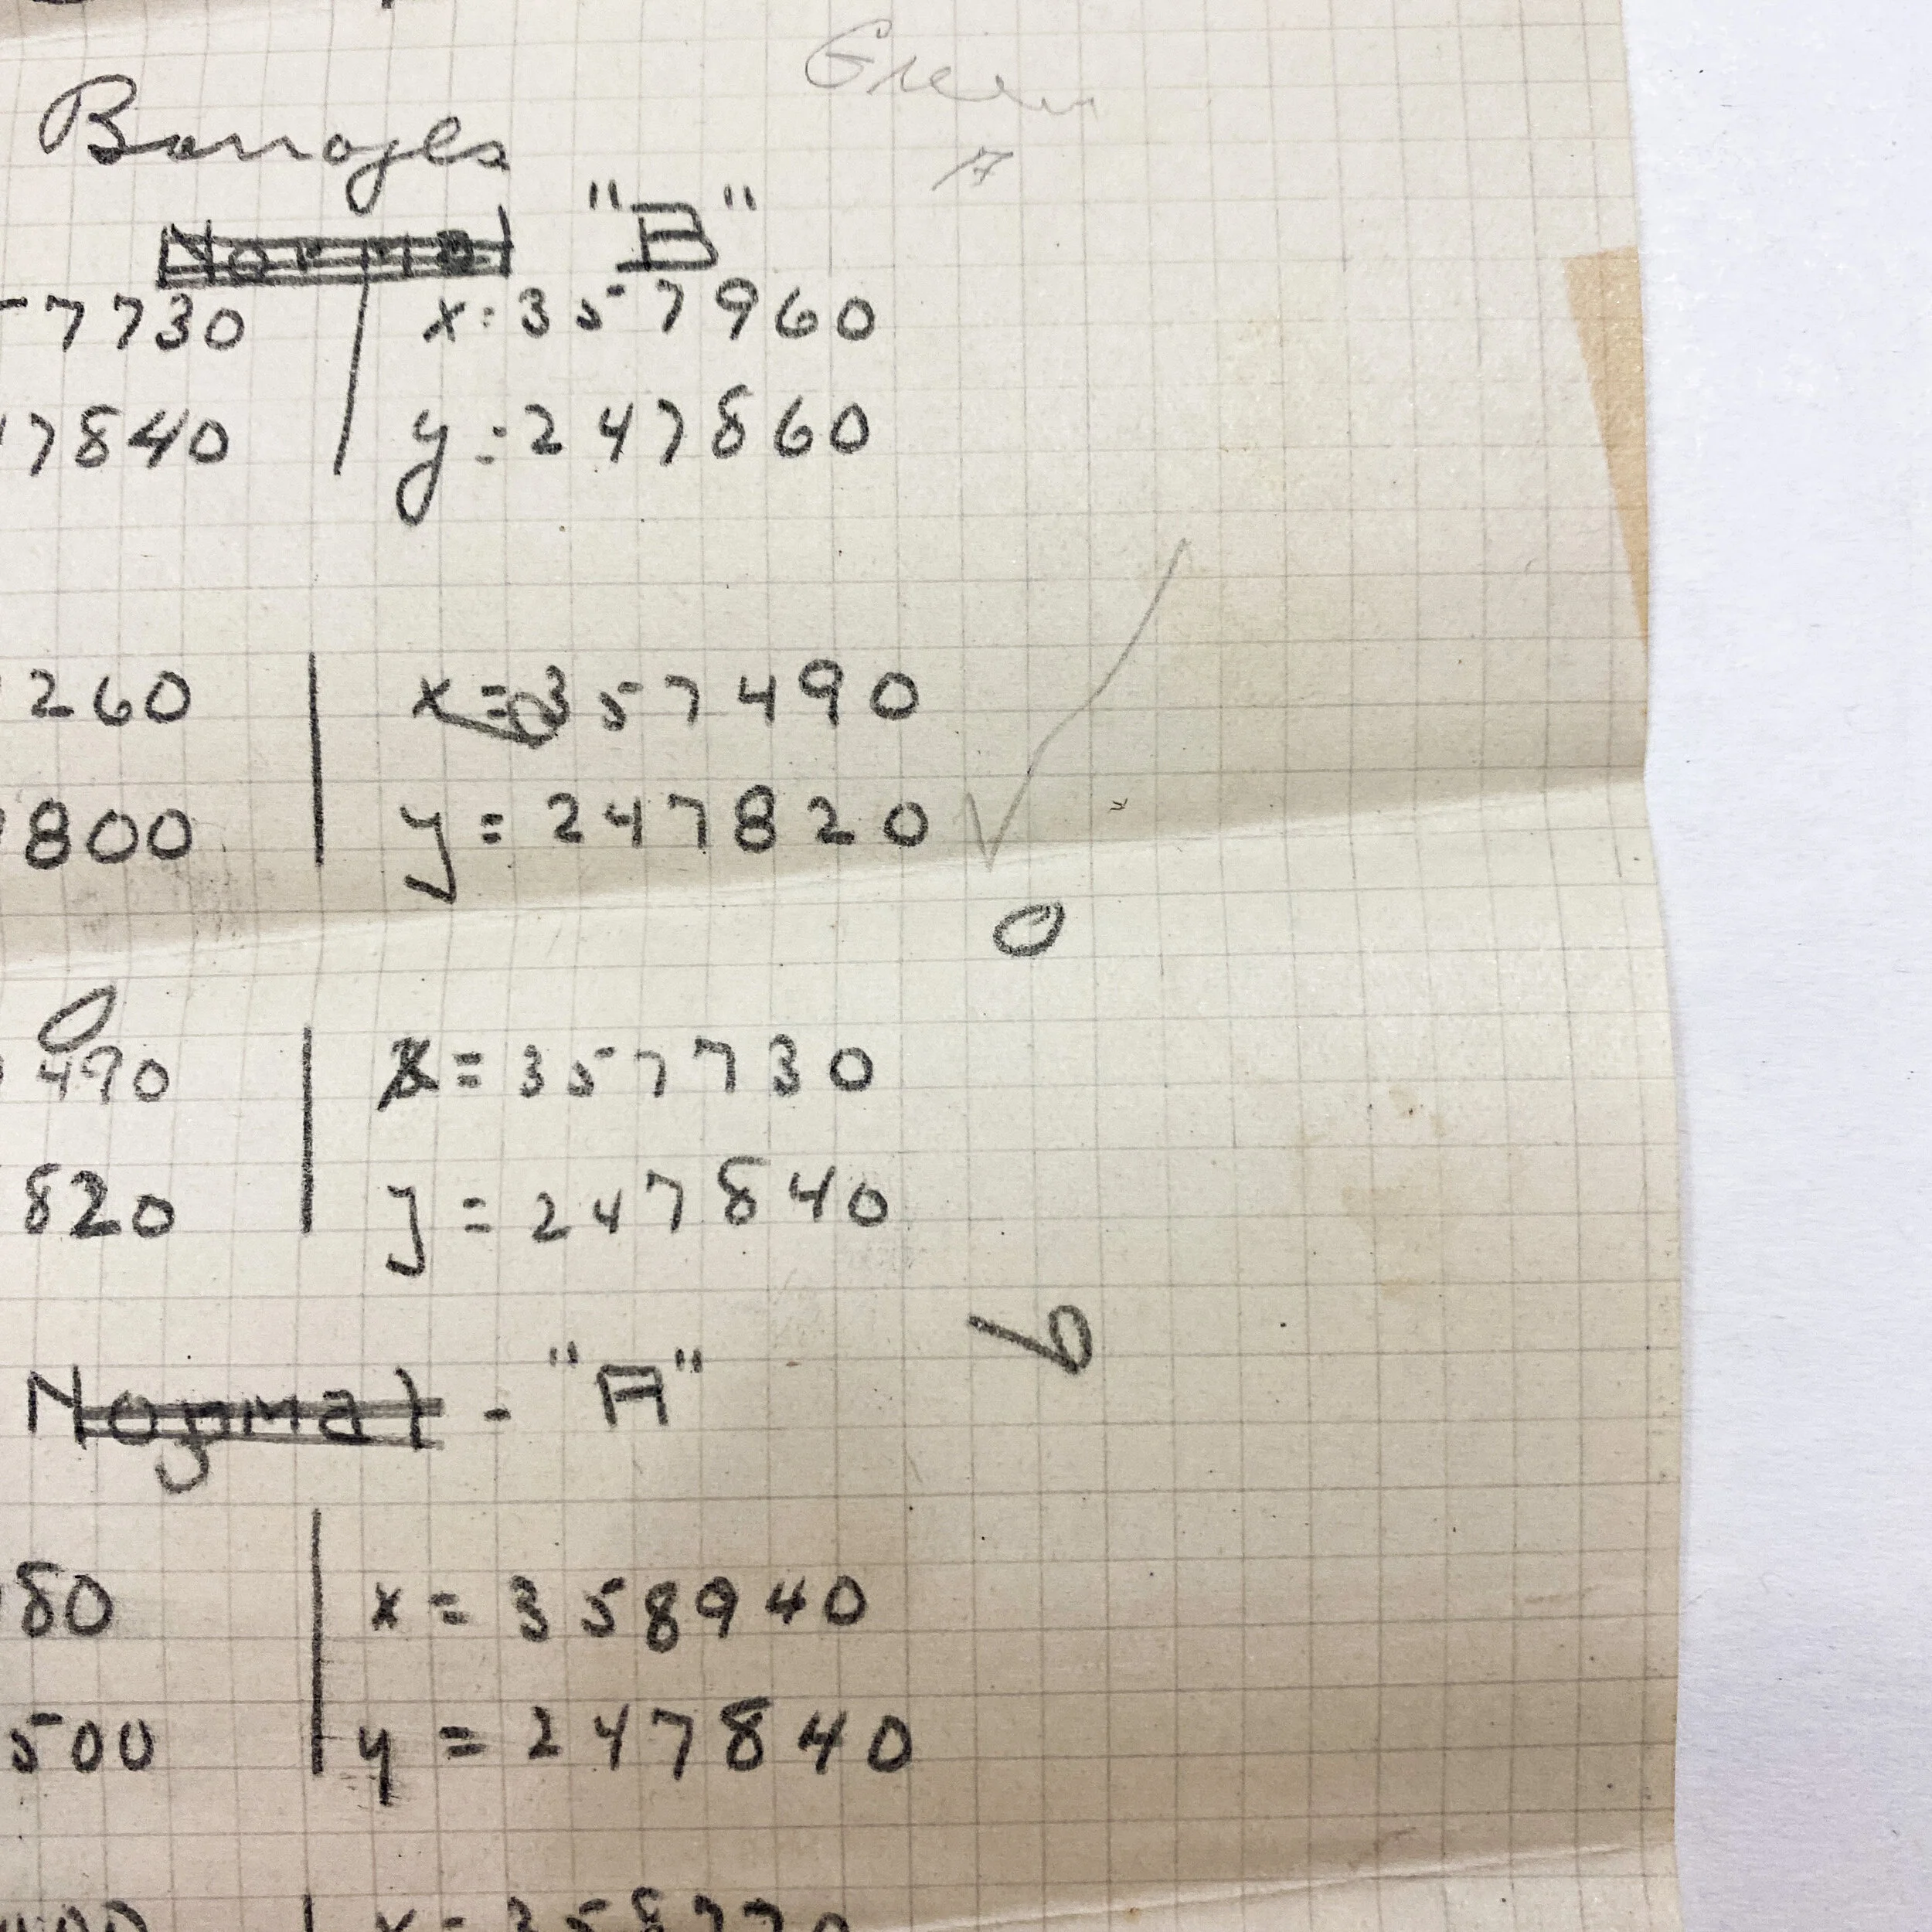 Green
7
Barrages
Normal "B"
57730 | x: 357960
7840 | y: 247860
260 | x = 357490
800 | y = 247820
490 | x = 357730
820 | y = 247840
Normal - "A"
80 | x = 358940
500 | y = 247840